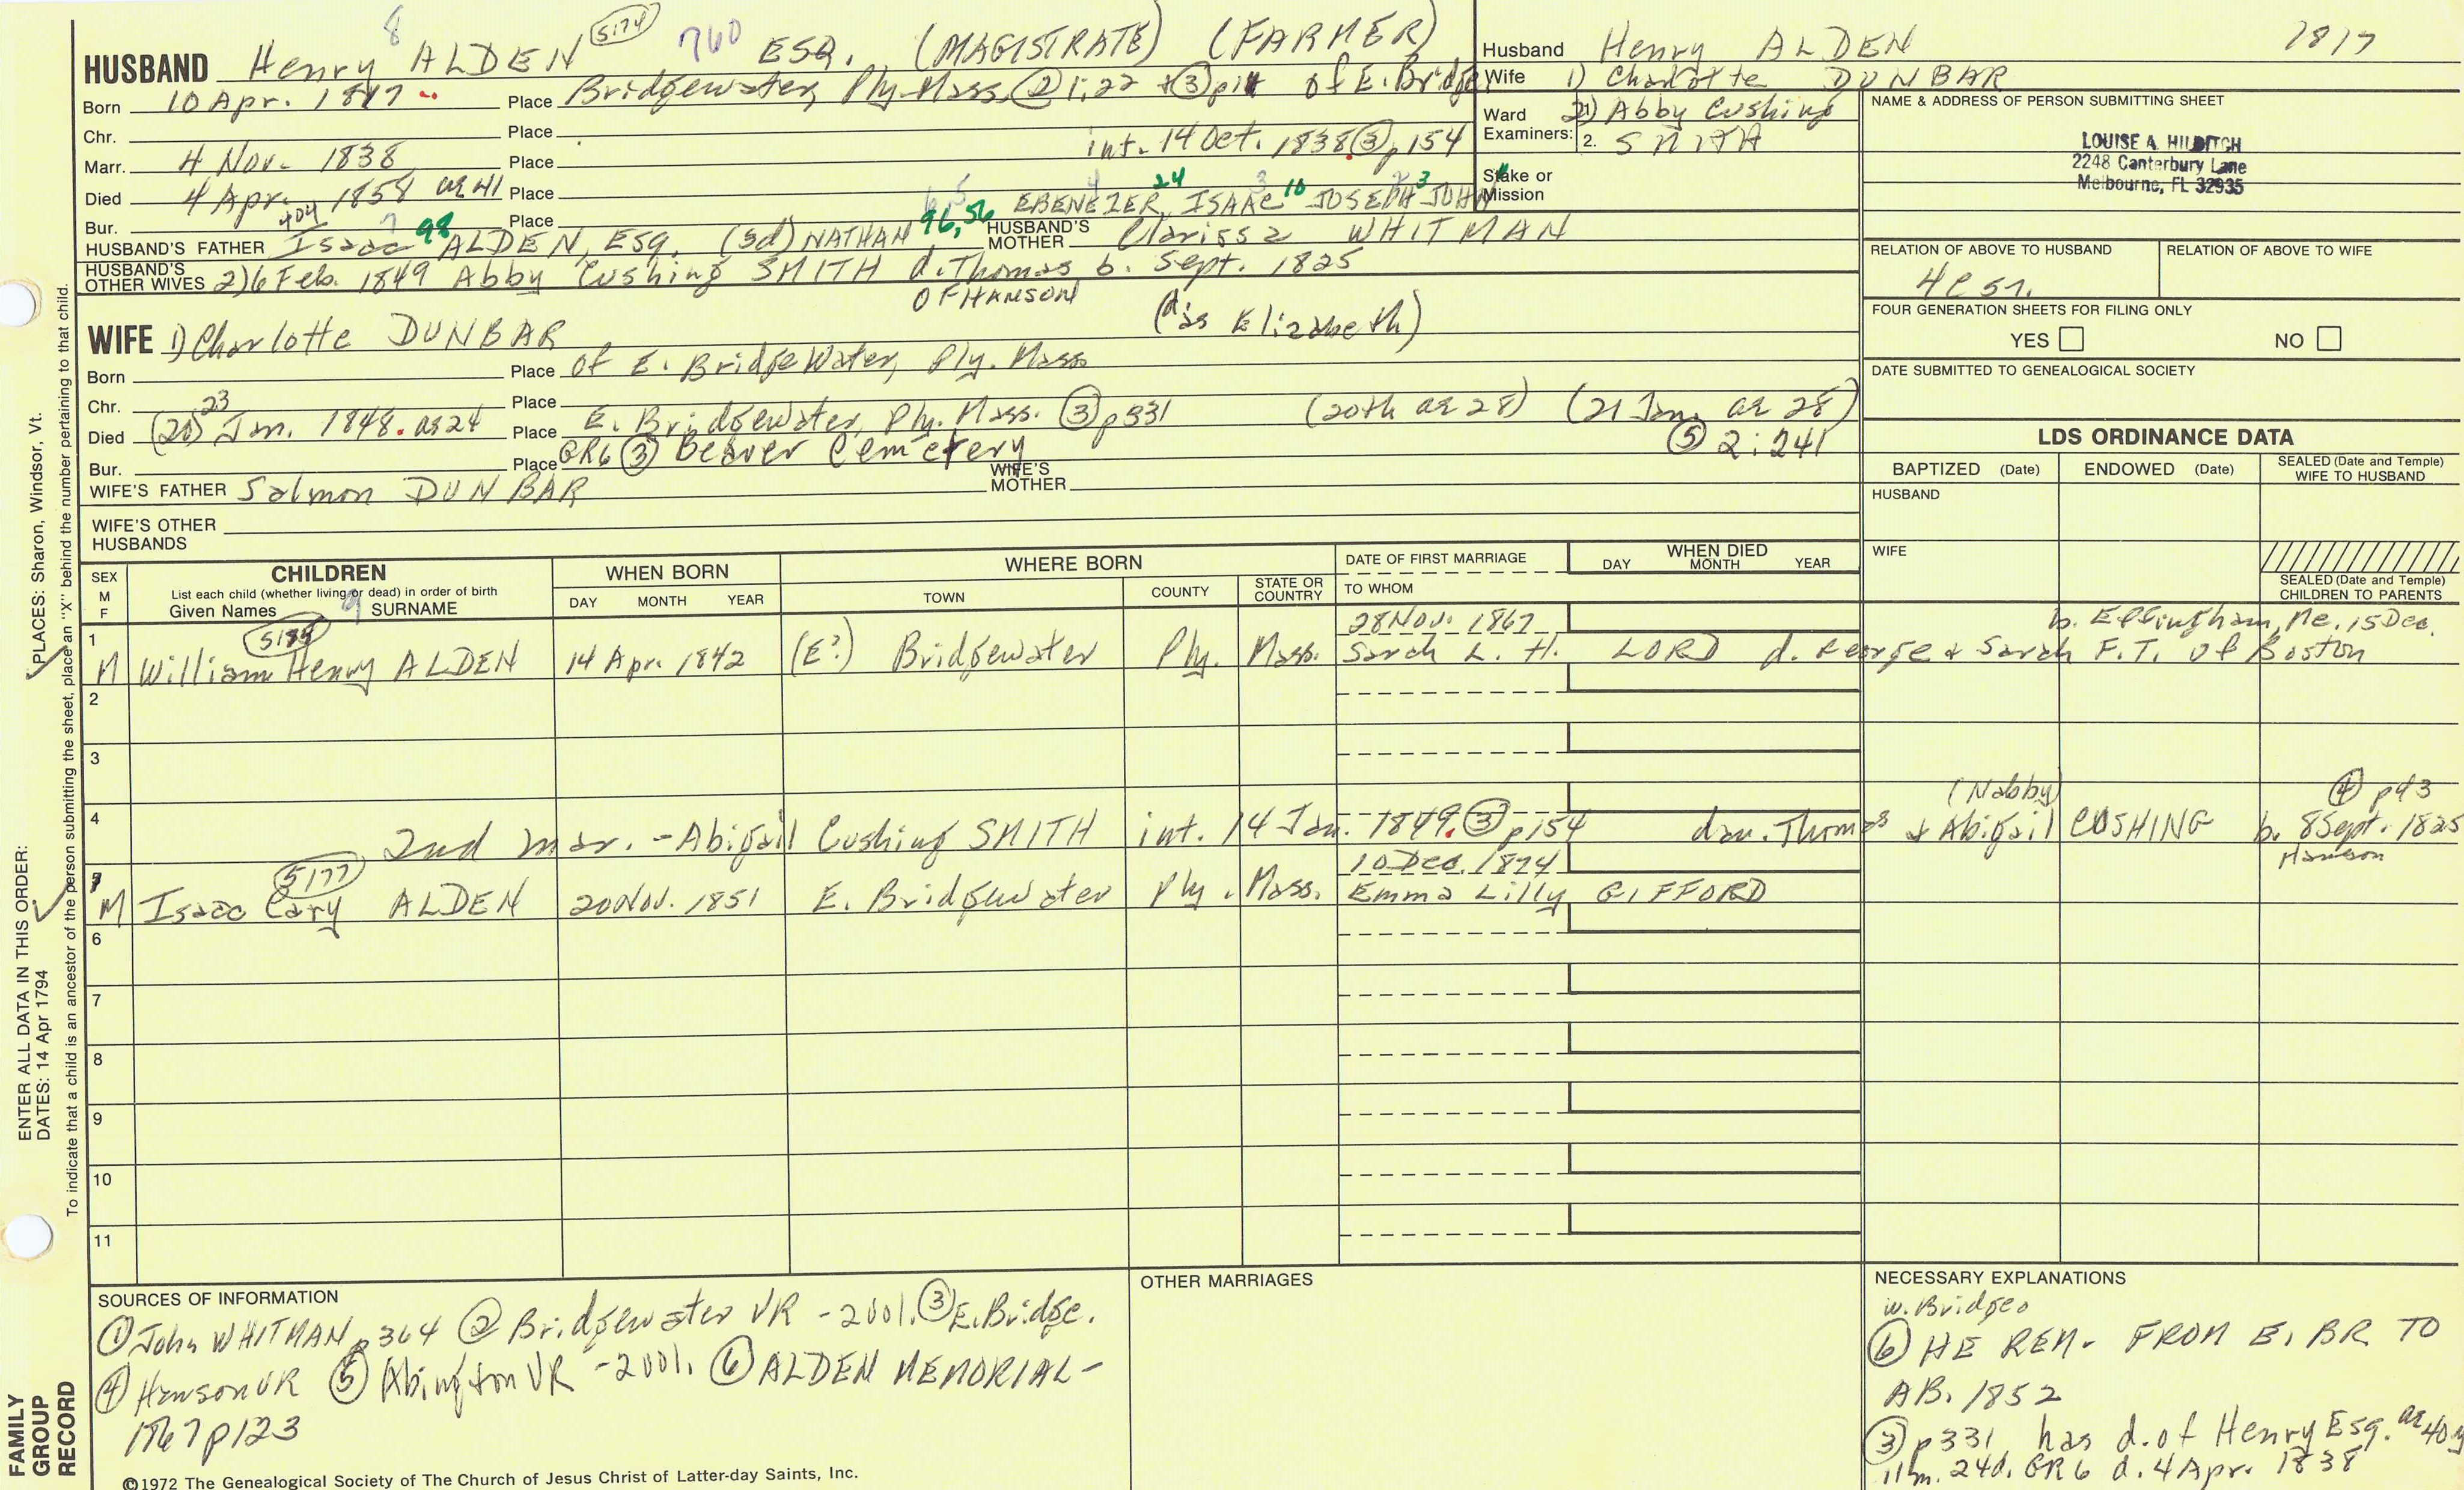 8 5174
HUSBAND Henry ALDEN 760 ESQ. (MAGISTRATE) (FARMER)
Born 10 Apr. 1817 Place Bridgewater, Ply. Mass. ② 1:22 + ③ p14 of E. Bridge
Chr. Place
int. 14 Oct. 1838 ③ p 154
Marr. 4 Nov. 1838 Place
Died 4 Apr. 1858 ae 41 Place
6 5 4 24 3 10 2 3
EBENEZER, ISAAC JOSEPH JOHN
Bur. Place
404 7 98 96, 56
HUSBAND'S FATHER Isaac ALDEN, ESQ. (3d) NATHAN HUSBAND'S MOTHER Clarissa WHITMAN
HUSBAND'S OTHER WIVES 2) 6 Feb. 1849 Abby Cushing SMITH d. Thomas b. Sept. 1825
OF HANSON
(d. as Elizabeth)
WIFE 1) Charlotte DUNBAR
Born Place of E. Bridgewater, Ply. Mass.
Chr. Place
23
Died (20) Jan. 1848. ae 24 Place E. Bridgewater, Ply. Mass. ③ p331 (20th ae 28) (21 Jan. ae 28)
⑤ 2:241
Bur. Place GR6 ③ Beaver Cemetery
WIFE'S FATHER Salmon DUNBAR WIFE'S MOTHER
WIFE'S OTHER HUSBANDS
Husband Henry ALDEN 1817
Wife 1) Charlotte DUNBAR
Ward Examiners: 2) Abby Cushing
2. SMITH
Stake or Mission
NAME & ADDRESS OF PERSON SUBMITTING SHEET
LOUISE A. HILDITCH
2248 Canterbury Lane
Melbourne, FL 32935
RELATION OF ABOVE TO HUSBAND RELATION OF ABOVE TO WIFE
FOUR GENERATION SHEETS FOR FILING ONLY
YES NO
DATE SUBMITTED TO GENEALOGICAL SOCIETY
LDS ORDINANCE DATA
BAPTIZED (Date) ENDOWED (Date) SEALED (Date and Temple) WIFE TO HUSBAND
HUSBAND
WIFE
SEALED (Date and Temple) CHILDREN TO PARENTS
SEX M F
CHILDREN
List each child (whether living or dead) in order of birth
Given Names 9 SURNAME
WHEN BORN
DAY MONTH YEAR
WHERE BORN
TOWN COUNTY STATE OR COUNTRY
DATE OF FIRST MARRIAGE
TO WHOM
WHEN DIED
DAY MONTH YEAR
1 28 Nov. 1867 b. Effingham, Me. 15 Dec.
M William Henry ALDEN 14 Apr. 1842 (E?) Bridgewater Ply. Mass. Sarah L. H. LORD d. George & Sarah F.T. of Boston
2
3
(Nabby) ④ p43
4 2nd mar. - Abigail Cushing SMITH int. 14 Jan. 1849. ③ p154 dau. Thomas & Abigail CUSHING b. 8 Sept. 1825
Hanson
5177 10 Dec. 1874
M Isaac Cary ALDEN 20 Nov. 1851 E. Bridgewater Ply. Mass. Emma Lilly GIFFORD
6
7
8
9
10
11
SOURCES OF INFORMATION
① John WHITMAN p364 ② Bridgewater VR - 2001. ③ E. Bridge.
④ Hanson VR ⑤ Abington VR - 2001. ⑥ ALDEN MEMORIAL -
1867 p123
OTHER MARRIAGES
NECESSARY EXPLANATIONS
w. Bridge.
⑥ HE REM. FROM E. BR TO
AB. 1852
③ p331 has d. of Henry Esq. ae 40y
11m. 24d. GR6 d. 4 Apr. 1838
©1972 The Genealogical Society of The Church of Jesus Christ of Latter-day Saints, Inc.
FAMILY GROUP RECORD
ENTER ALL DATA IN THIS ORDER:
DATES: 14 Apr 1794
PLACES: Sharon, Windsor, Vt.
To indicate that a child is an ancestor of the person submitting the sheet, place an "X" behind the number pertaining to that child.